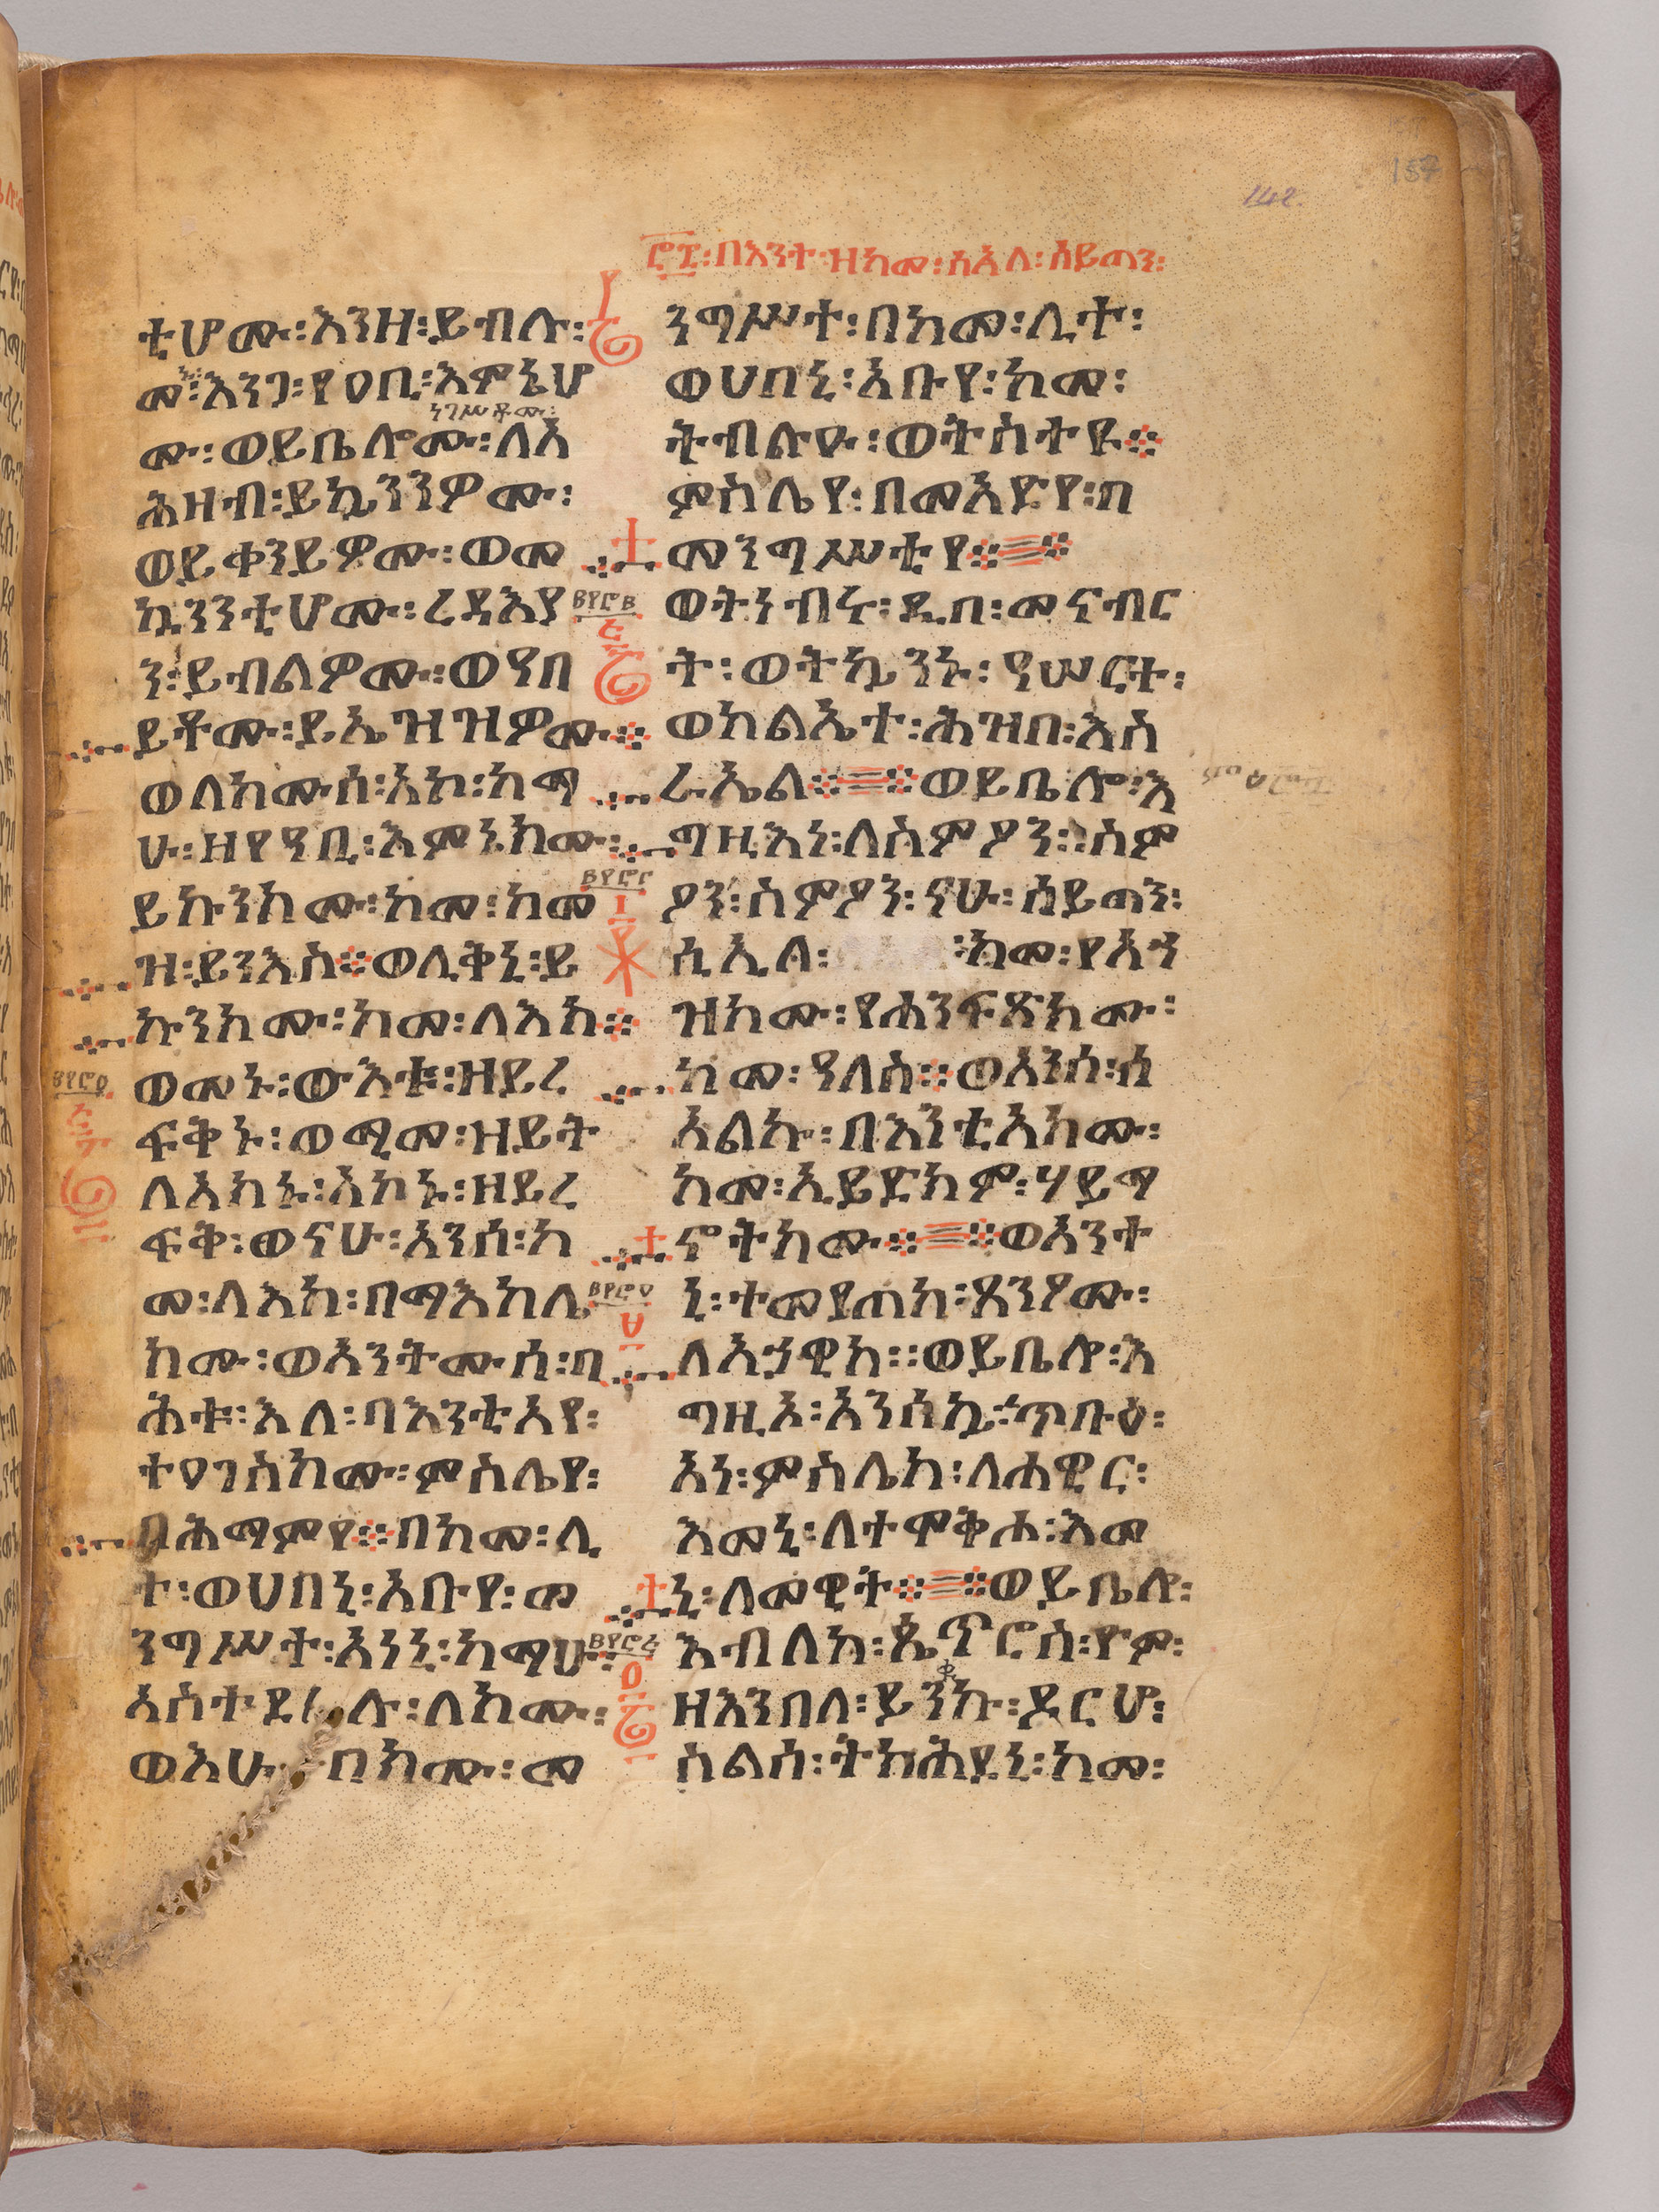 142
157
፸፰፡በእንተ፡ዘከመ፡ሰአለ፡ሰይጣን፡
ቲሆሙ፡እንዘ፡ይብሉ፡
መ፡እንጋ፡የዐቢ፡እምኔሆ
ነገሥቶሙ፡
ሙ፡ወይቤሎሙ፡ለአ
ሕዛብ፡ይኴንንዎሙ፡
ወይቀንይዎሙ፡ወመ
ኳንንቲሆሙ፡ረዳእያ
ን፡ይብልዎሙ፡ወዓበ
ይቶሙ፡ይኤዝዝዎሙ።
ወለክሙሰ፡አኮ፡ከማ
ሁ፡ዘየዓቢ፡እምኔክሙ፡
ይኩንክሙ፡ከመ፡ከመ
ዝ፡ይንእስ።ወሊቅኒ፡ይ
ኩንክሙ፡ከመ፡ላእክ።
ወመኑ፡ውእቱ፡ዘይረ
ፍቅኑ፡ወሚመ፡ዘይት
ለአክኑ፡አኮኑ፡ዘይረ
ፍቅ፡ወናሁ፡አንሰ፡ከ
መ፡ላእክ፡በማእከሌ
ክሙ፡ወአንትሙሰ፡በ
ሕቱ፡እለ፡በእንቲአየ፡
ተዐገስክሙ፡ምስሌየ፡
በሕማምየ።በከመ፡ሊ
ተ፡ወሀበኒ፡አቡየ፡መ
ንግሥተ፡አነኒ፡ከማሁ፡
ኣስተዴሉ፡ለክሙ፡
ወእሁበክሙ፡መ
ንግሥተ፡በከመ፡ሊተ፡
ወሀበኒ፡አቡየ፡ከመ፡
ትብልዑ፡ወትስተዩ።
ምስሌየ፡በመአድየ፡በ
መንግሥቲየ።
ወትነብሩ፡ዲበ፡መናብር
ት፡ወትኴንኑ፡ዓሠርተ፡
ወክልኤተ፡ሕዝበ፡እስ
ራኤል።ወይቤሎ፡እ
ግዚእነ፡ለስምዖን፡ስም
ዖን፡ስምዖን፡ናሁ፡ሰይጣን፡
ሲኢለ፡ ከመ፡የአኀ
ዝክሙ፡የሐንፍጽክሙ፡
ከመ፡ዓለስ።ወአንሰ፡ሰ
አልኩ፡በእንቲአክሙ፡
ከመ፡ኢይድክም፡ሃይማ
ኖትክሙ።ወአንተ
ኒ፡ተመየጠከ፡ጸንዖሙ፡
ለአኃዊከ።ወይቤሎ፡እ
ግዚኦ፡አንሰኬ፡ጥቡዕ፡
አነ፡ምስሌከ፡ለሐዊር፡
እመኒ፡ለተሞቅሖ፡እመ
ኒ፡ለመዊት።ወይቤሎ፡
እብለከ፡ጴጥሮስ፡ዮም፡
ዘእንበለ፡ይንቁ፡ዶርሆ፡
ስልሰ፡ትክሕደኒ፡ከመ፡